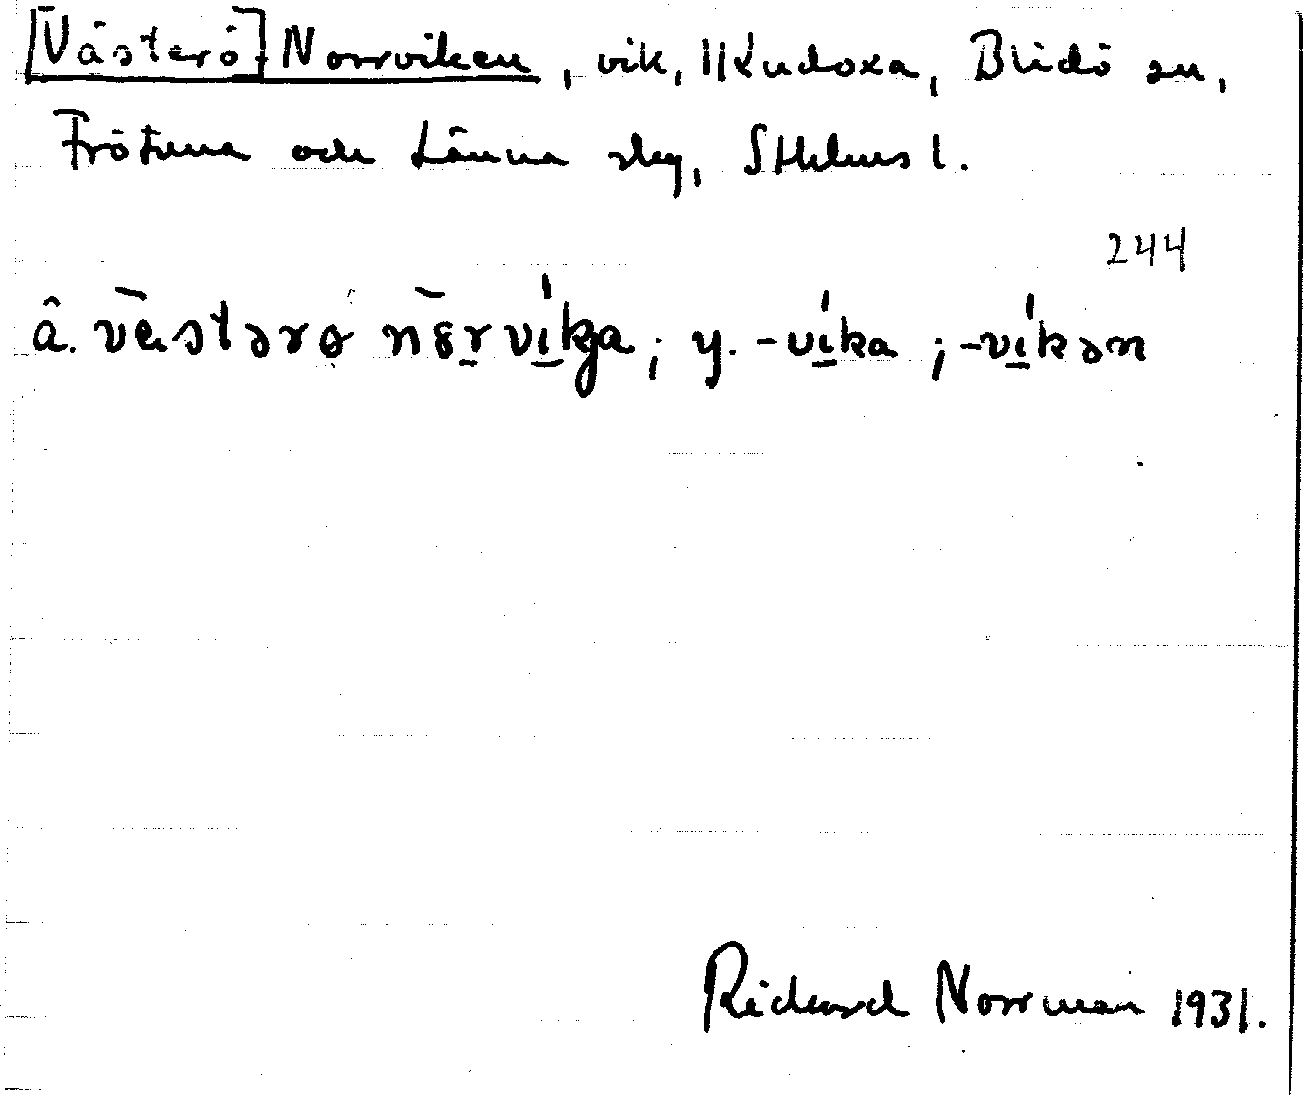 [Västerö] Norrviken, vik, Kudoxa, Blidö sn,
Frötuna och Länna skg, Sthlms l.
244
â. västərø nørvika; y. -vika; -vikən
Richard Norrman 1931.